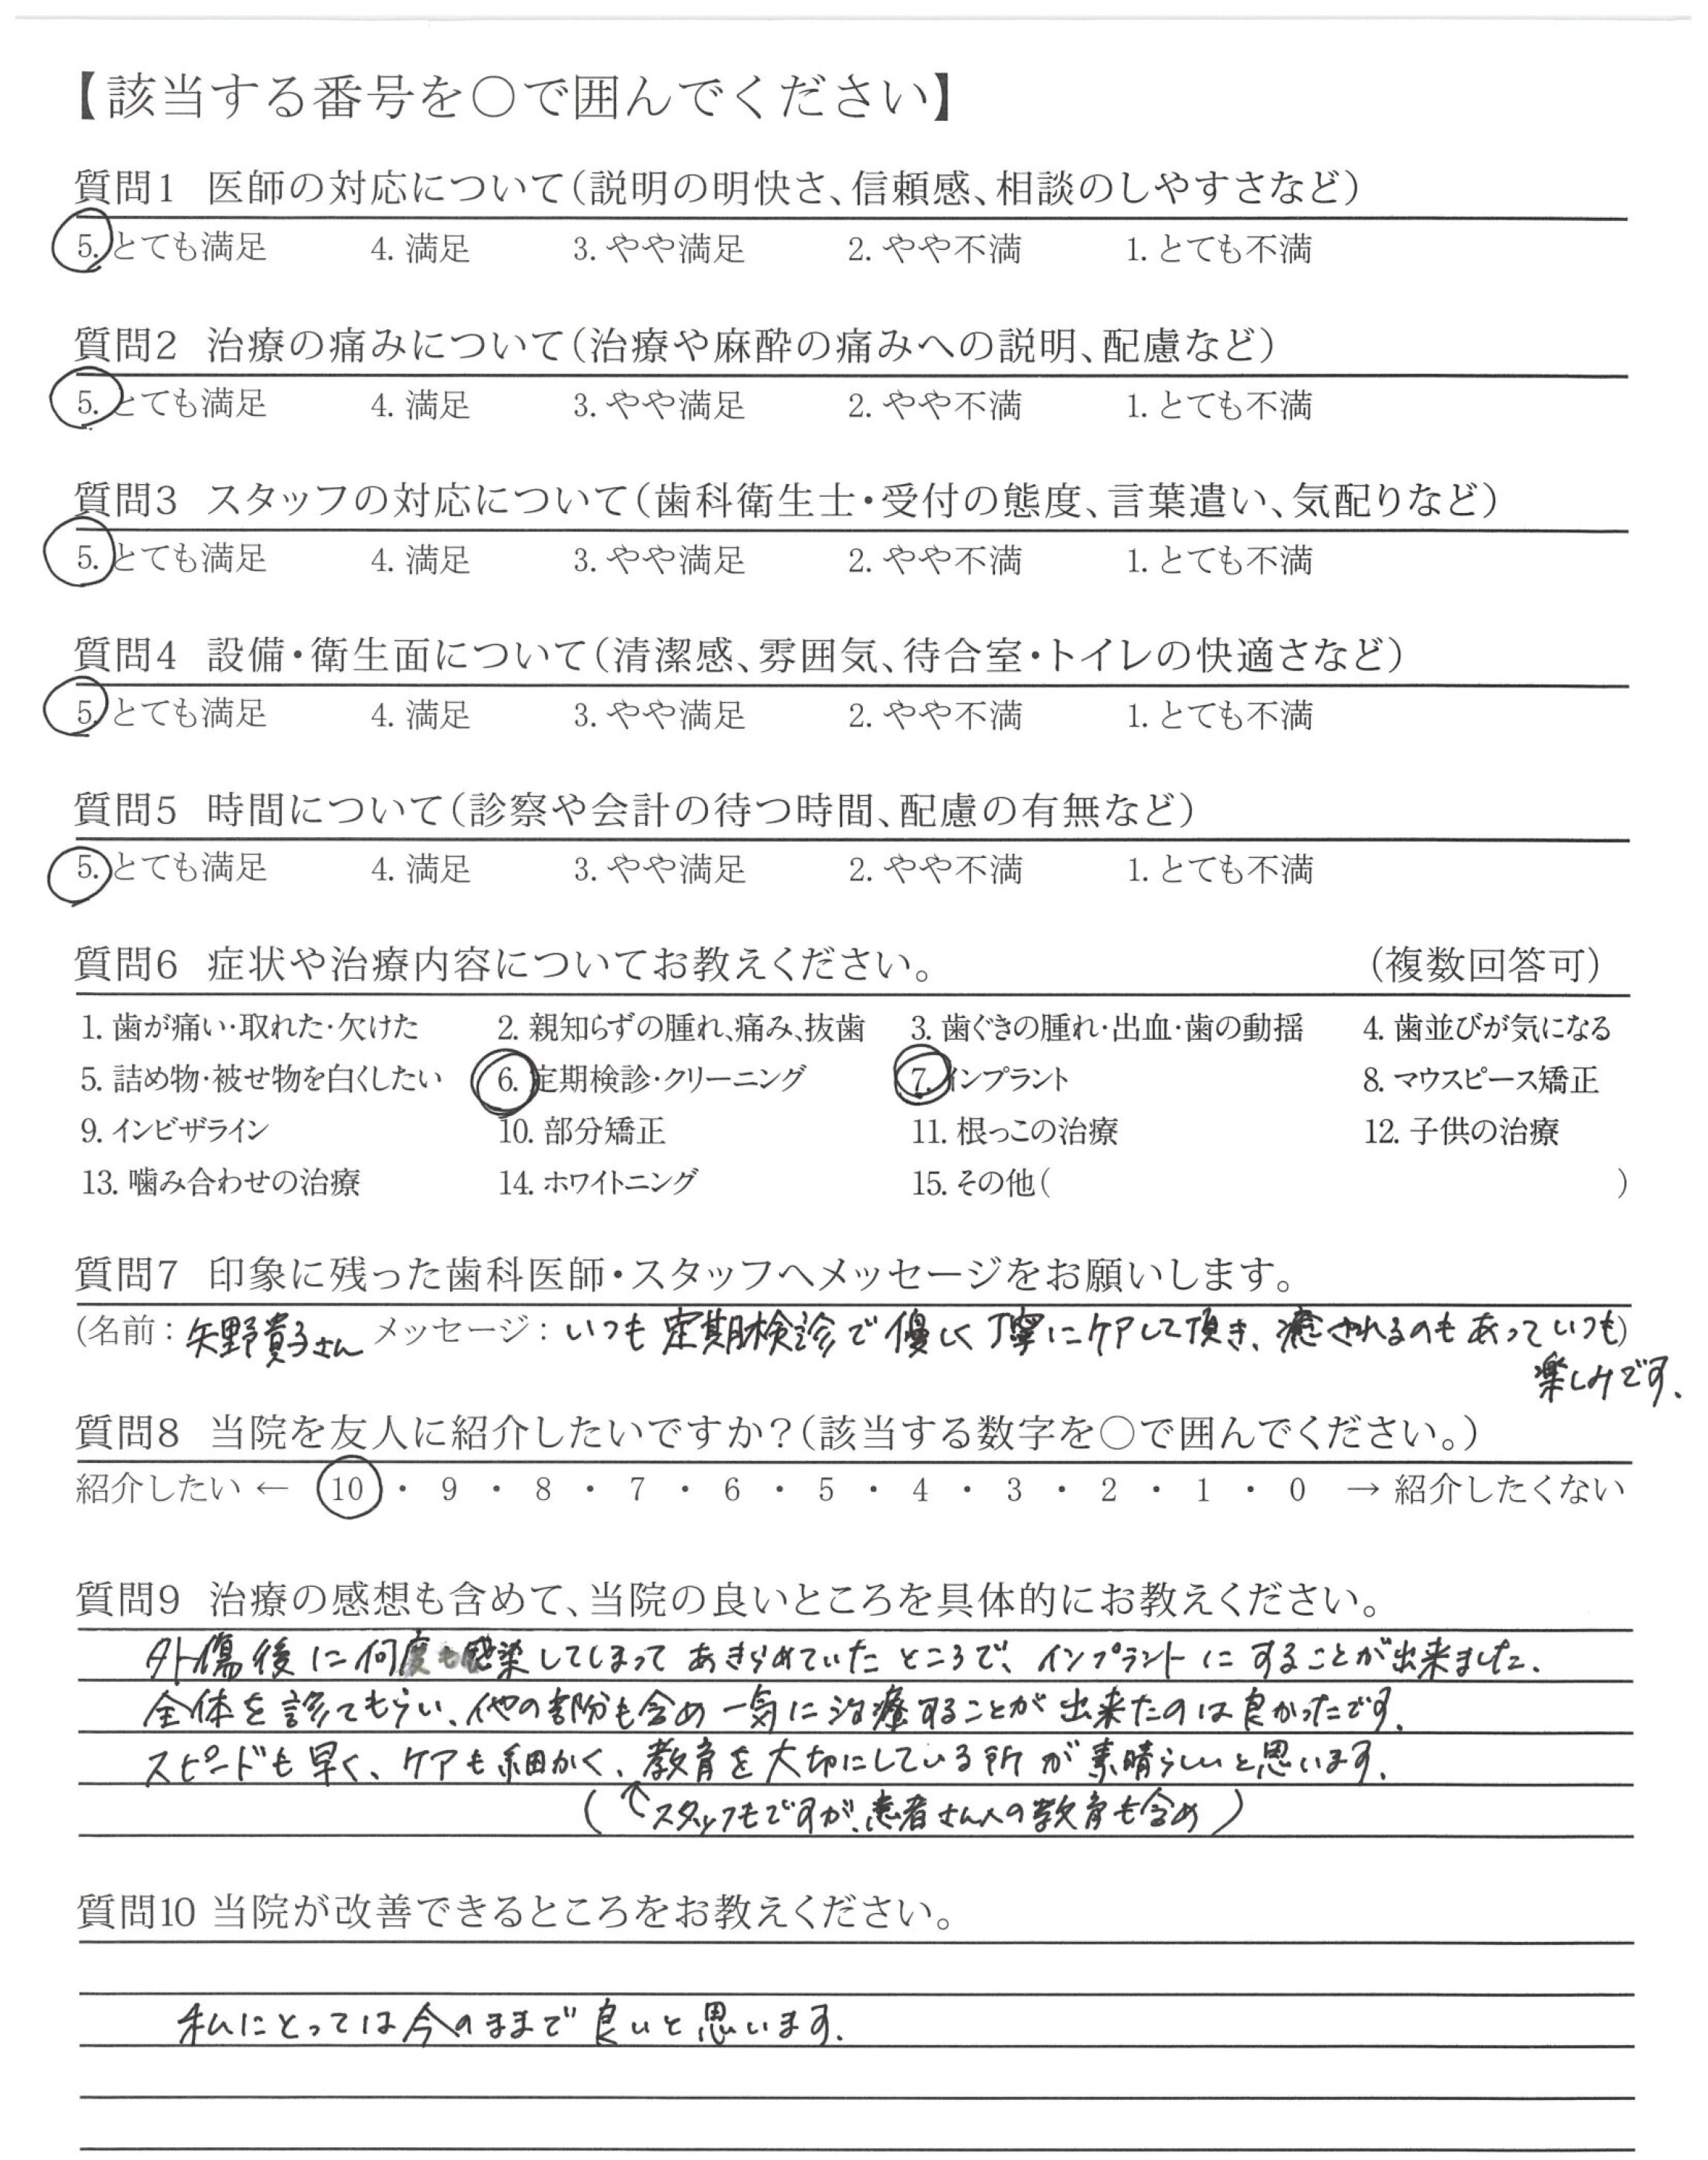 【該当する番号を○で囲んでください】
質問1 医師の対応について（説明の明快さ、信頼感、相談のしやすさなど）
5. とても満足 4. 満足 3. やや満足 2. やや不満 1. とても不満
質問2 治療の痛みについて（治療や麻酔の痛みへの説明、配慮など）
5. とても満足 4. 満足 3. やや満足 2. やや不満 1. とても不満
質問3 スタッフの対応について（歯科衛生士・受付の態度、言葉遣い、気配りなど）
5. とても満足 4. 満足 3. やや満足 2. やや不満 1. とても不満
質問4 設備・衛生面について（清潔感、雰囲気、待合室・トイレの快適さなど）
5. とても満足 4. 満足 3. やや満足 2. やや不満 1. とても不満
質問5 時間について（診察や会計の待つ時間、配慮の有無など）
5. とても満足 4. 満足 3. やや満足 2. やや不満 1. とても不満
質問6 症状や治療内容についてお教えください。 （複数回答可）
1. 歯が痛い・取れた・欠けた 2. 親知らずの腫れ、痛み、抜歯 3. 歯ぐきの腫れ・出血・歯の動揺 4. 歯並びが気になる
5. 詰め物・被せ物を白くしたい 6. 定期検診・クリーニング 7. インプラント 8. マウスピース矯正
9. インビザライン 10. 部分矯正 11. 根っこの治療 12. 子供の治療
13. 噛み合わせの治療 14. ホワイトニング 15. その他（ ）
質問7 印象に残った歯科医師・スタッフへメッセージをお願いします。
（名前：矢野貴子さん メッセージ：いつも定期検診で優しく丁寧にケアして頂き、癒されるのもあっていつも）
楽しみです。
質問8 当院を友人に紹介したいですか？（該当する数字を○で囲んでください。）
紹介したい ← 10 ・ 9 ・ 8 ・ 7 ・ 6 ・ 5 ・ 4 ・ 3 ・ 2 ・ 1 ・ 0 → 紹介したくない
質問9 治療の感想も含めて、当院の良いところを具体的にお教えください。
外傷後に何度も感染してしまってあきらめていたところで、インプラントにすることが出来ました。
全体を診てもらい、他の部分も含め一気に治療することが出来たのは良かったです。
スピードも早く、ケアも細かく、教育を大切にしている所が素晴らしいと思います。
（↑スタッフもですが、患者さんへの教育も含め）
質問10 当院が改善できるところをお教えください。
私にとっては今のままで良いと思います。